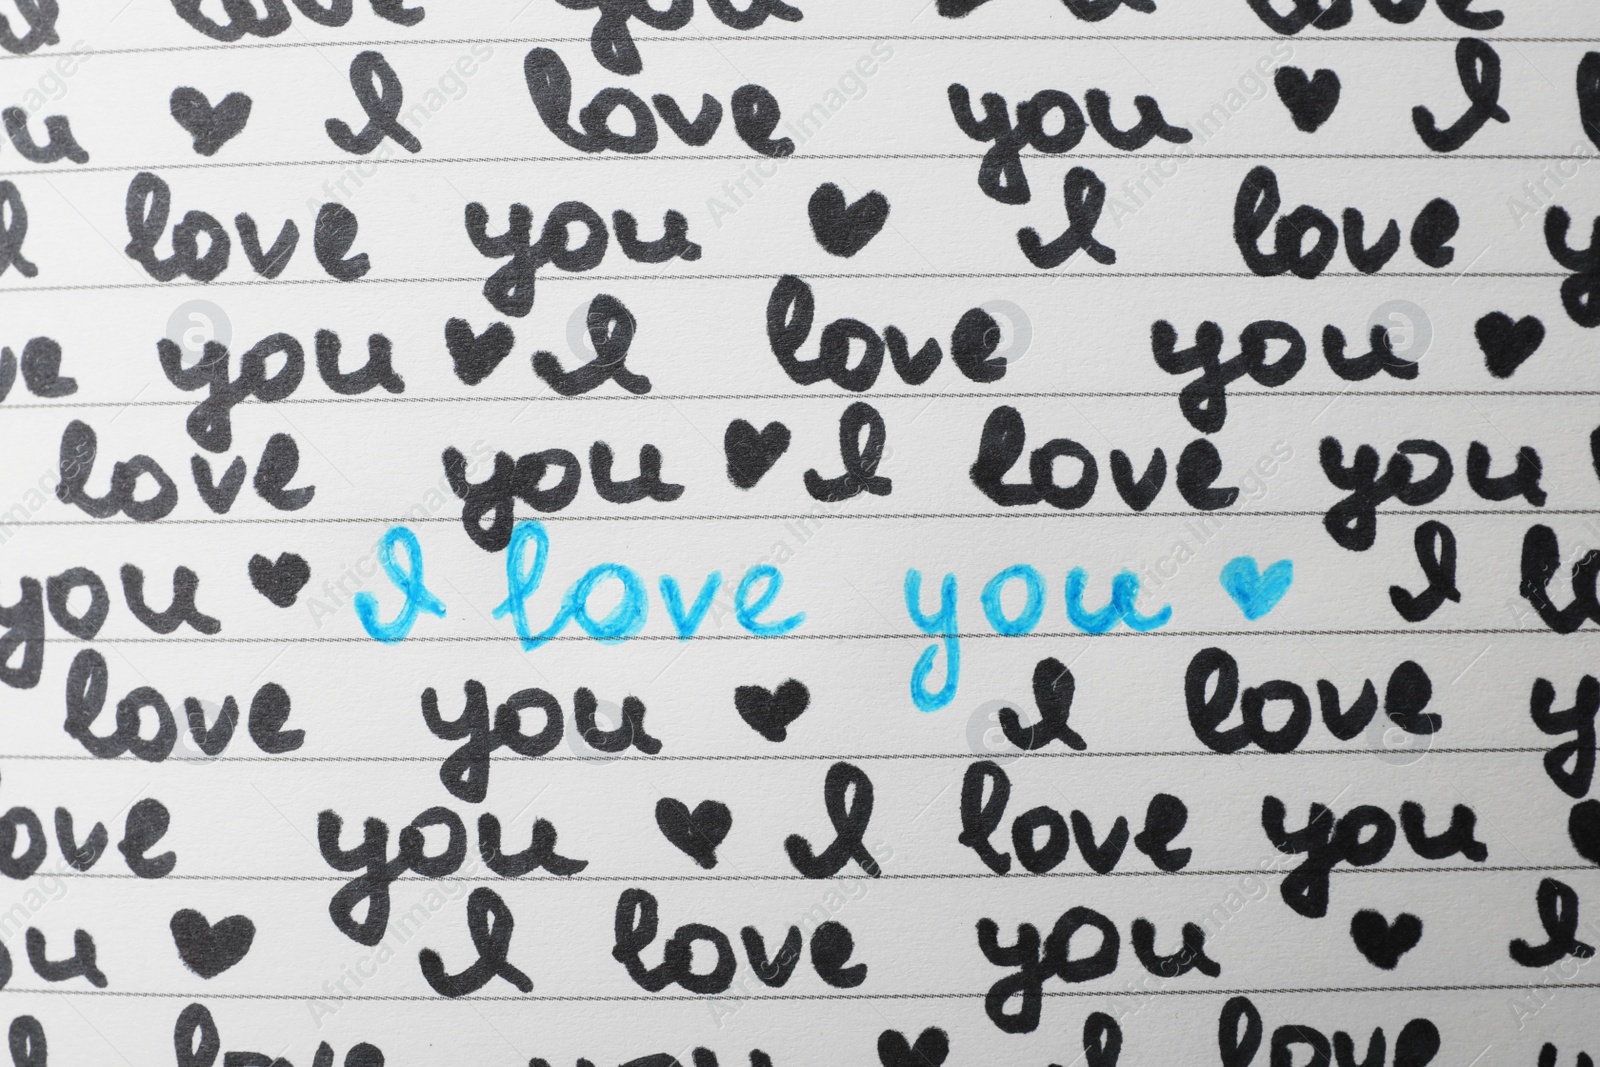 I love you I
you ♥ I love you ♥ I
I love you ♥ I love y
ve you ♥ I love you ♥
love you ♥ I love you
you ♥ I love you ♥ I lo
love you ♥ I love y
ove you ♥ I love you ♥
ou ♥ I love you ♥ I
I love you ♥ I love y